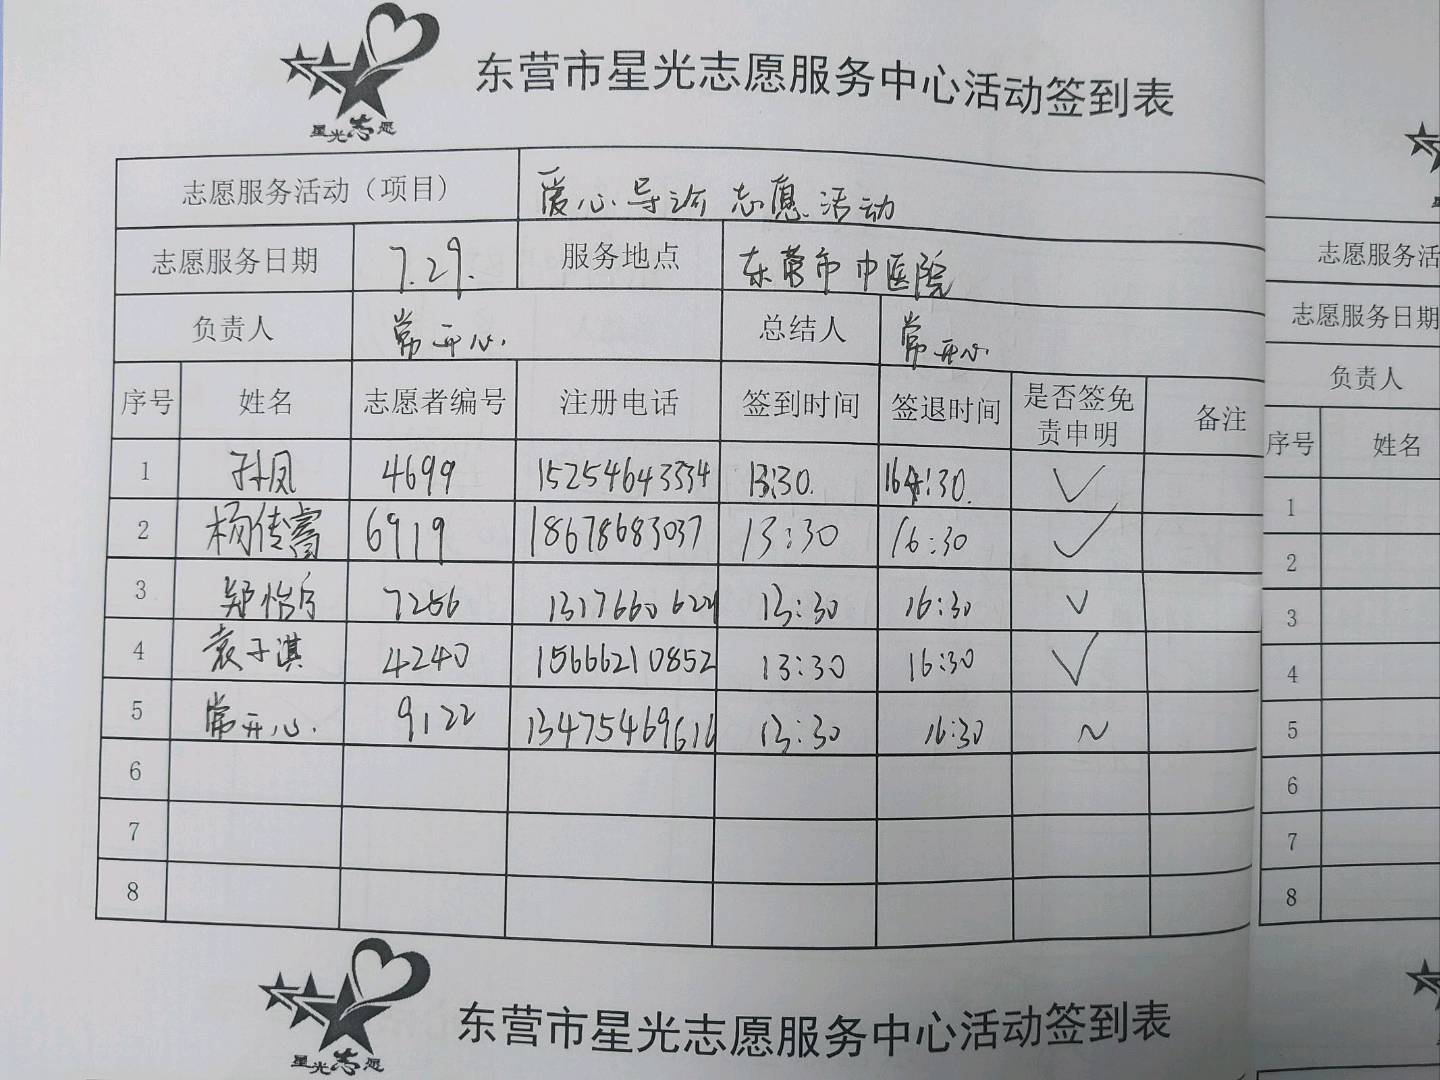 东营市星光志愿服务中心活动签到表
星光志愿
志愿服务活动（项目） 爱心导诊志愿活动
志愿服务日期 7.29. 服务地点 东营市中医院
负责人 常开心. 总结人 常开心.
序号 姓名 志愿者编号 注册电话 签到时间 签退时间 是否签免责申明 备注
1 孙凤 4699 15254643334 13:30. 16:30. √
2 杨传睿 6919 18678683037 13:30 16:30 √
3 郑怡 7256 13:30 16:30 √
4 袁子淇 4240 15666210852 13:30 16:30 √
5 常开心. 9122 13475469616 13:30 16:30
6
7
8
星光志愿
东营市星光志愿服务中心活动签到表
志愿服务活
志愿服务日期
负责人
序号 姓名
1
2
3
4
5
6
7
8